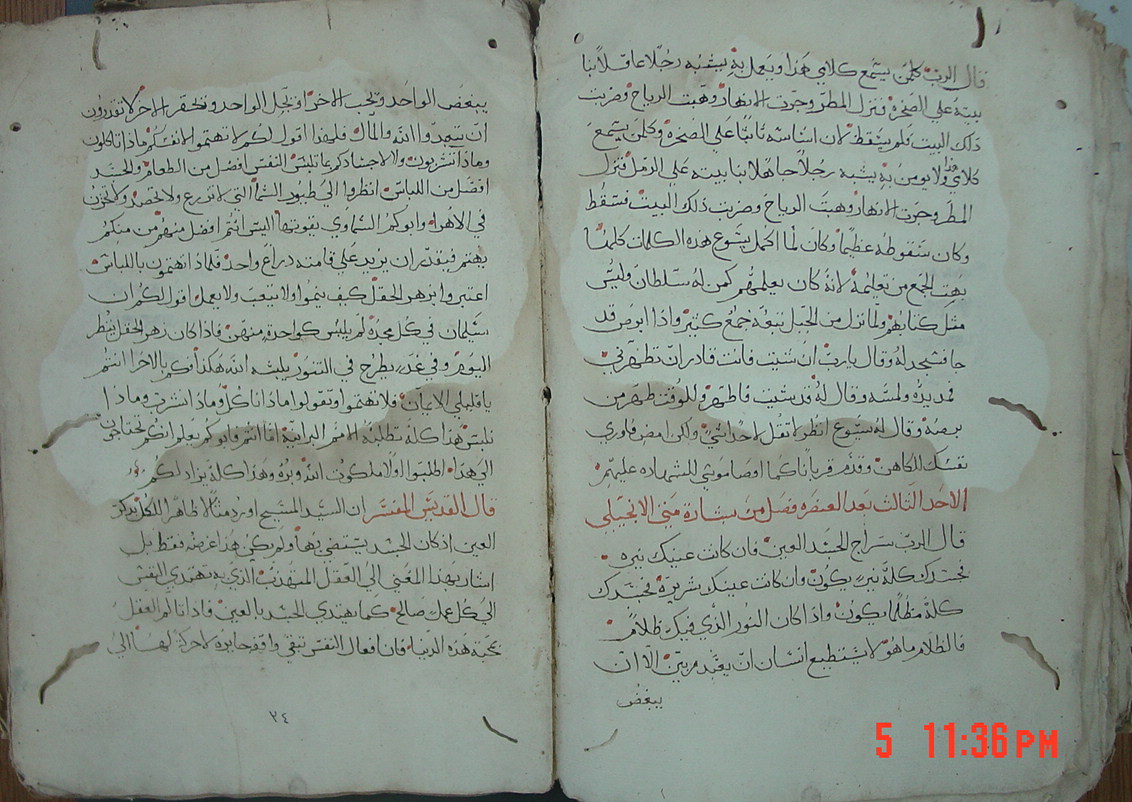 قال الرب كلمن يسمع كلامي هذا ويعمل به يشبه رجلًا عاقلًا بنا
بيته علي الصخره فنزل المطر وجرت الانهار وهبت الرياح وضربت
ذلك البيت فلم يسقط لان اساسه ثابتًا علي الصخره وكلمن يسمع
كلامي هذا ولا يومن به يشبه رجلًا جاهلًا بنا بيته علي الرمل فنزل
المطر وجرت الانهار وهبت الرياح وضربت ذلك البيت فسقط
وكان سقوطه عظيمًا وكان لما اكمل يسوع هذه الكلمات كلها
بهت الجمع من تعليمه لانه كان يعلمهم كمن له سلطان وليس
مثل كتابهم ولما نزل من الجبل تبعه جمع كثير واذا ابرص قد
جا فسجد له وقال يارب ان شيت فانت قادر ان تطهرني
فمد يده ولمسه وقال له قد شيت فاطهر وللوقت طهر من
برصه وقال له يسوع انظر لا تقل لاحد شي ولكن امض فاوري
نفسك للكاهن وقدم قربانًا كما اوصا موسي للشهاده عليهم
الاحد الثالث بعد العنصره فصل من بشارة متي الانجيلي
قال الرب سراج الجسد العين فان كانت عينك نيره
فجسدك كله نير يكون وان كانت عينك شريرة فجسدك
كله مظلمًا يكون واذا كان النور الذي فيك ظلام
فالظلام ما هو لا يستطيع انسان ان يعبد ربين الا ان
يبغض
يبغض الواحد ويحب الاخر او يجل الواحد ويحتقر الاخر لا تقدرون
ان تعبدوا الله والمال فلهذا اقول لكم لا تهتموا لانفسكم ماذا تاكلون
وماذا تشربون ولا لاجسادكم بما تلبس النفس افضل من الطعام والجسد
افضل من اللباس انظروا الي طيور السما التي لا تزرع ولا تحصد ولا تخزن
في الاهرا وابوكم السماوي يقوتها اليس انتم افضل منهم من منكم
يهتم فيقدر ان يزيد علي قامته دراع واحد فلماذا تهتمون باللباس
اعتبروا بزهر الحقل كيف ينموا ولا يتعب ولا يعمل اقول لكم ان
سليمان في كل مجده لم يلبس كواحدة منهن فاذا كان زهر الحقل ينظر
اليوم وفي غد يطرح في التنور يلبسه الله هكذا فكم بالاحرا انتم
يا قليلي الايمان فلا تهتموا وتقولوا ماذا ناكل وماذا نشرب وماذا
نلبس هذا كله تطلبه الامم البرانية اما انتم فابوكم يعلم انكم تحتاجون
الي هذا اطلبوا اولا ملكوت الله وبره وهذا كله يزاد لكم
قال القديس المفسر ان السيد المسيح اورد مثالًا ظاهرًا للكل بذكر
العين اذ كان الجسد يستضي بها ولم يكن هذا غرضه فقط بل
اشار بهذا المعني الي العقل المهذب الذي به تهتدي النفس
الي كل عمل صالح كما يهتدي الجسد بالعين فاذا نام العقل
بمحبة هذه الدنيا فان افعال النفس تبقي واقفه لا حركة لها الي
٢٤
5 11:36 PM